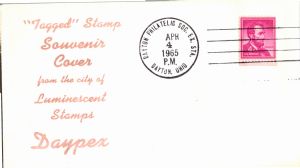 "Tagged" Stamp
Souvenir
Cover
from the city of
Luminescent
Stamps
Daypex
DAYTON PHILATELIC SOC. EX. STA.
APR
4
1965
P.M.
DAYTON, OHIO